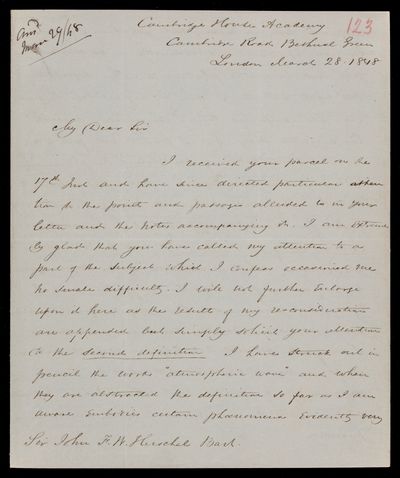 Cambridge House Academy
123
Cambridge Road Bethnal Green
London March 28. 1848
Ansd
Mar 29/48
My Dear Sir
I received your parcel on the
17th Inst and have since directed particular atten
tion to the points and passages alluded to in your
letter and the notes accompanying it. I am extreme
ly glad that you have called my attention to a
part of the subject which I confess occasioned me
no small difficulty. I will not further enlarge
upon it here as the results of my reconsideration
are appended but simply solicit your attention
to the second definition I have struck out in
pencil the words "atmospheric wave" and when
they are abstracted the definition so far as I am
aware embodies certain phænomena evidently very
Sir John F. W. Herschel Bart.